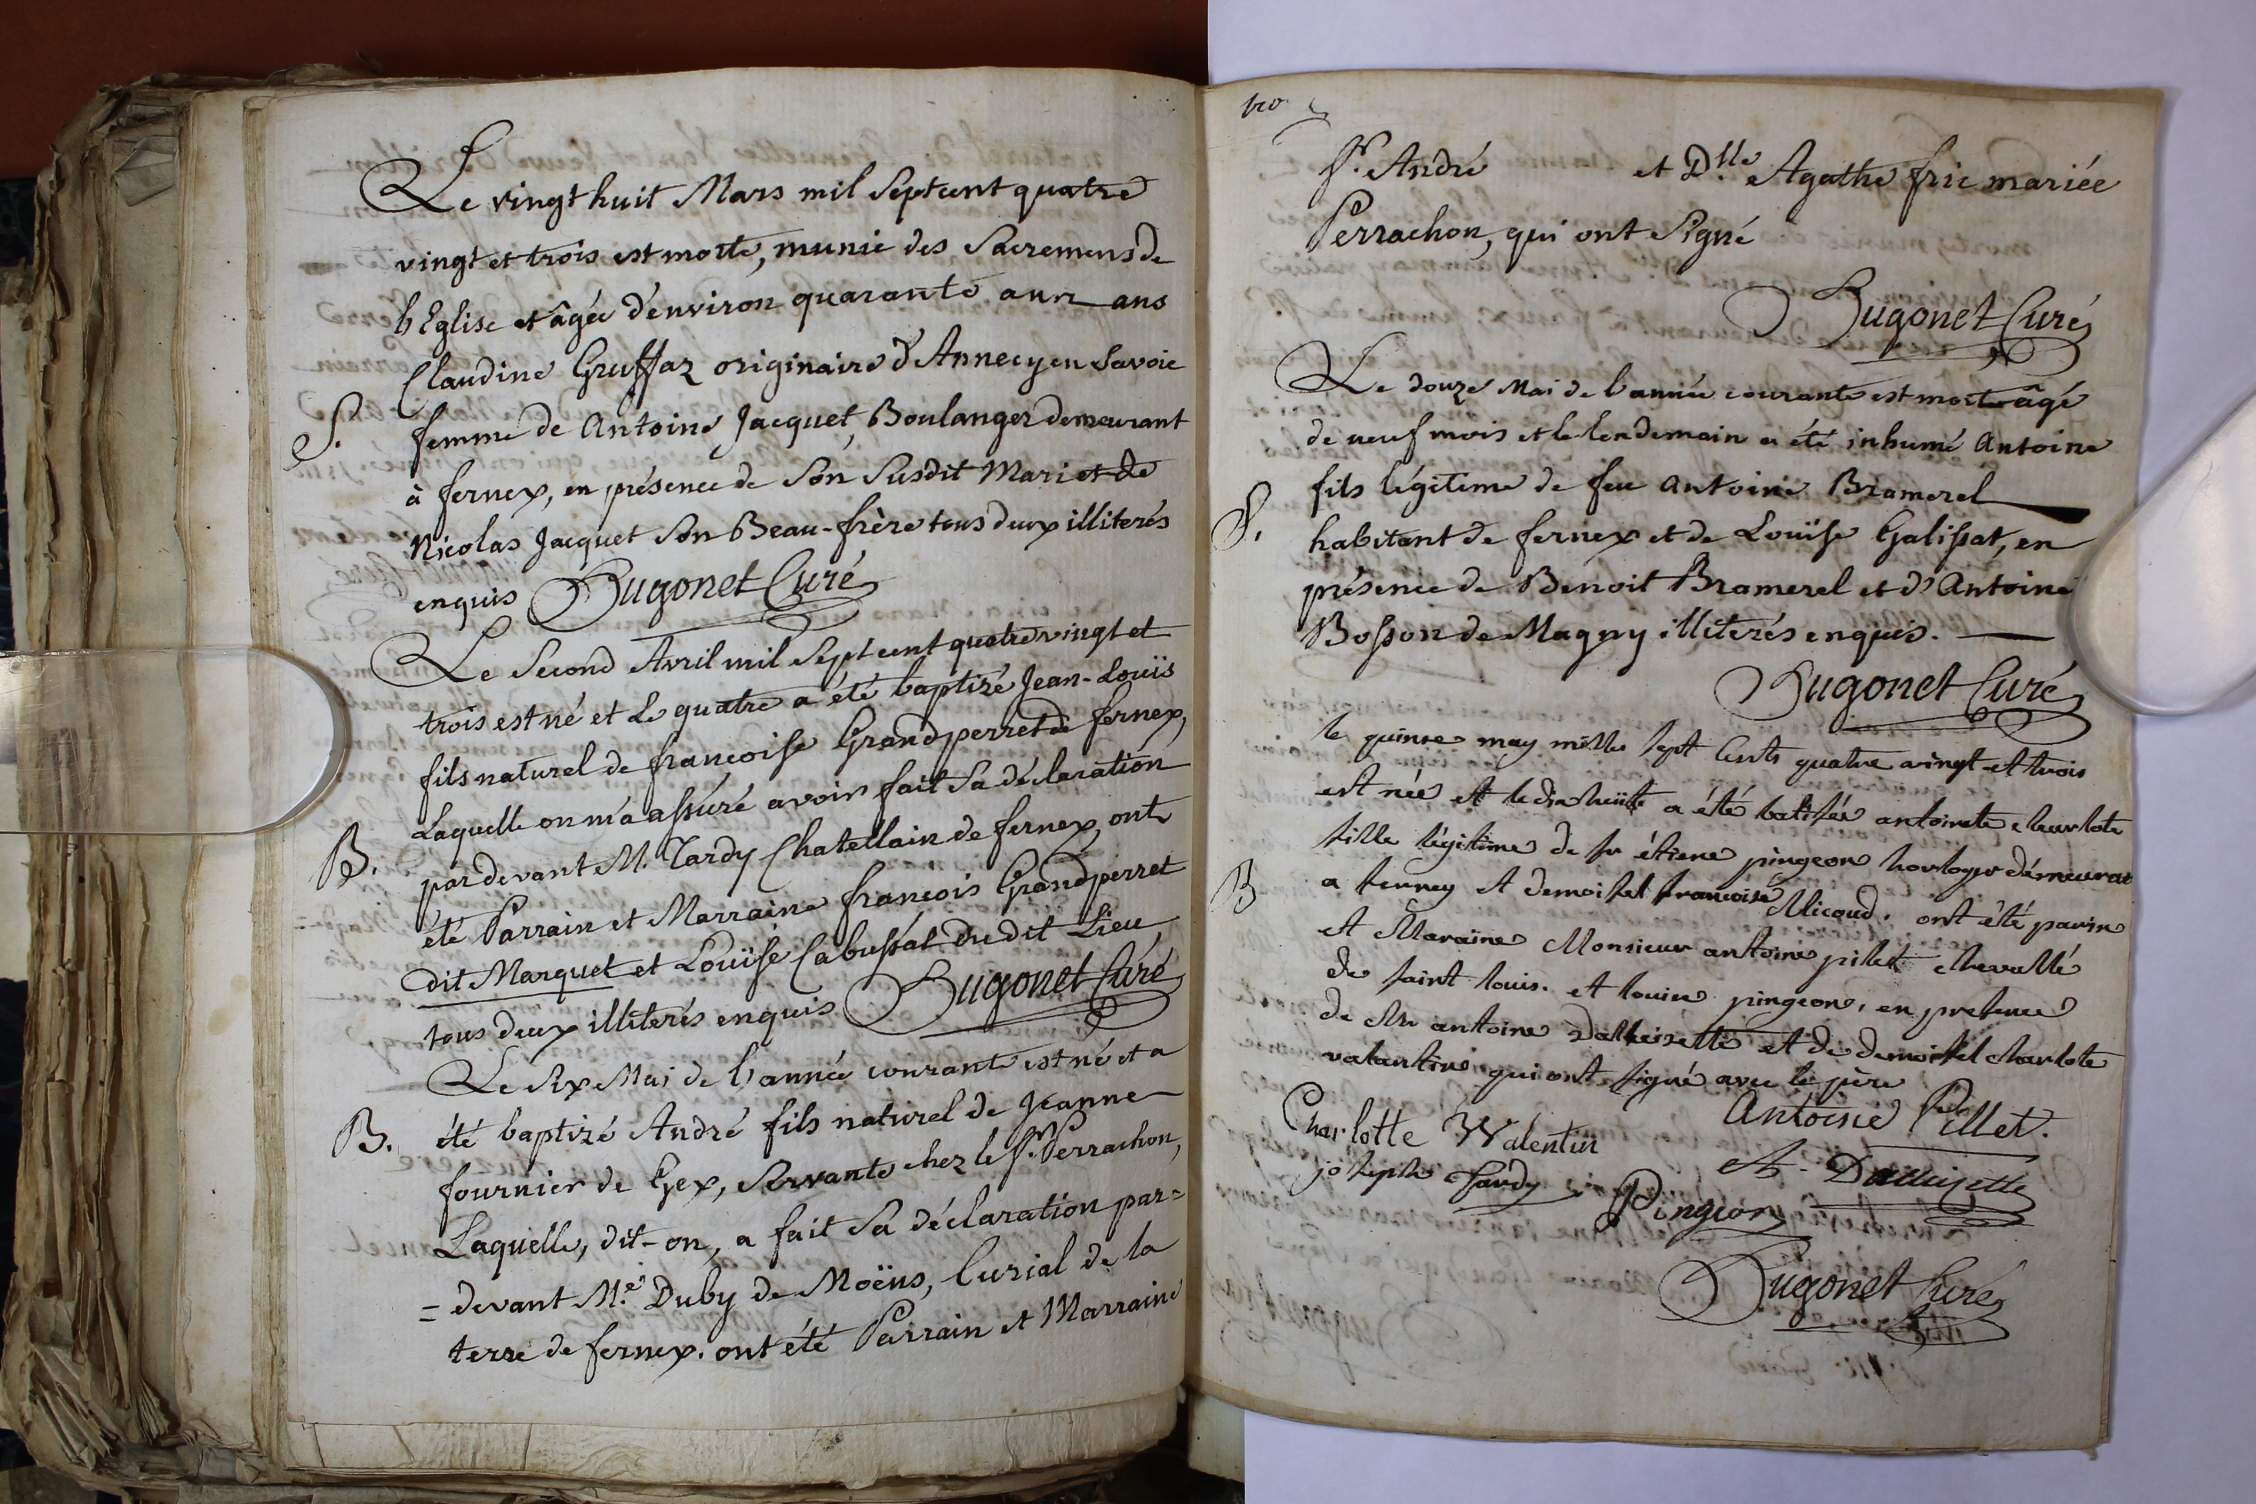 Le vingt huit Mars mil Septcent quatre
vingt et trois est morte, munie des Sacremens de
l'Eglise et âgée d'environ quarante ans
Claudine Gruffaz originaire d'Annecy en Savoie
S.
femme de Antoine Jacquet, Boulanger demeurant
à fernex, en présence de Son Susdit Mari et de
Nicolas Jacquet Son Beau-frère tous deux illiterés
enquis Hugonet Curé
Le Second Avril mil Sept cent quatre vingt et
trois est né et Le quatre a été baptizé Jean-Louïs
fils naturel de françoise Grandperret de fernex,
Laquelle on m'a assuré avoir fait Sa déclaration
B.
pardevant M. Tardy Chatellain de fernex, ont
été Parrain et Marraine françois Grandperret
dit Marquet et Louïse Cabussat dudit Lieu
tous deux illiterés enquis Hugonet Curé
Le Six Mai de l'année courante est né et a
B.
été baptizé André fils naturel de Jeanne
fournier de Gex, Servante chez le Sr. Perrachon,
Laquelle, dit-on, a fait Sa déclaration par=
=devant M.e Duby de Moëns, Curial de la
terre de fernex. ont été Parrain et Marraine
120
Sr. André et D.lle Agathe fric mariée
Perrachon, qui ont Signé
Hugonet Curé
Le douze Mai de l'année courante est mort âgé
de neuf mois et le lendemain a été inhumé Antoine
fils légitime de feu Antoine Bramerel
S.
habitant de fernex et de Louïse Galissat, en
présence de Benoit Bramerel et d'Antoine
Bosson de Magny illiterés enquis.
Hugonet Curé
le quinse may mille sept Cents quatre vingt et trois
est née et le dix huite a été batisée antoinete charlote
fille légitime de sr étiene pingeon horloger démeurat
B
a ferney et demoisel francoise Micoud. ont été parin
et Maraine Monsieur antoine pilet chevallé
de saint louis. et louise pingeon, en presence
de Mr antoine Dalleizette et de demoisel charlote
valantine qui ont signé avec le père
Charlotte Valentin
Antoine Pillet.
joseph Tardy
A. Dalleizette
Pingeon
Hugonet Curé